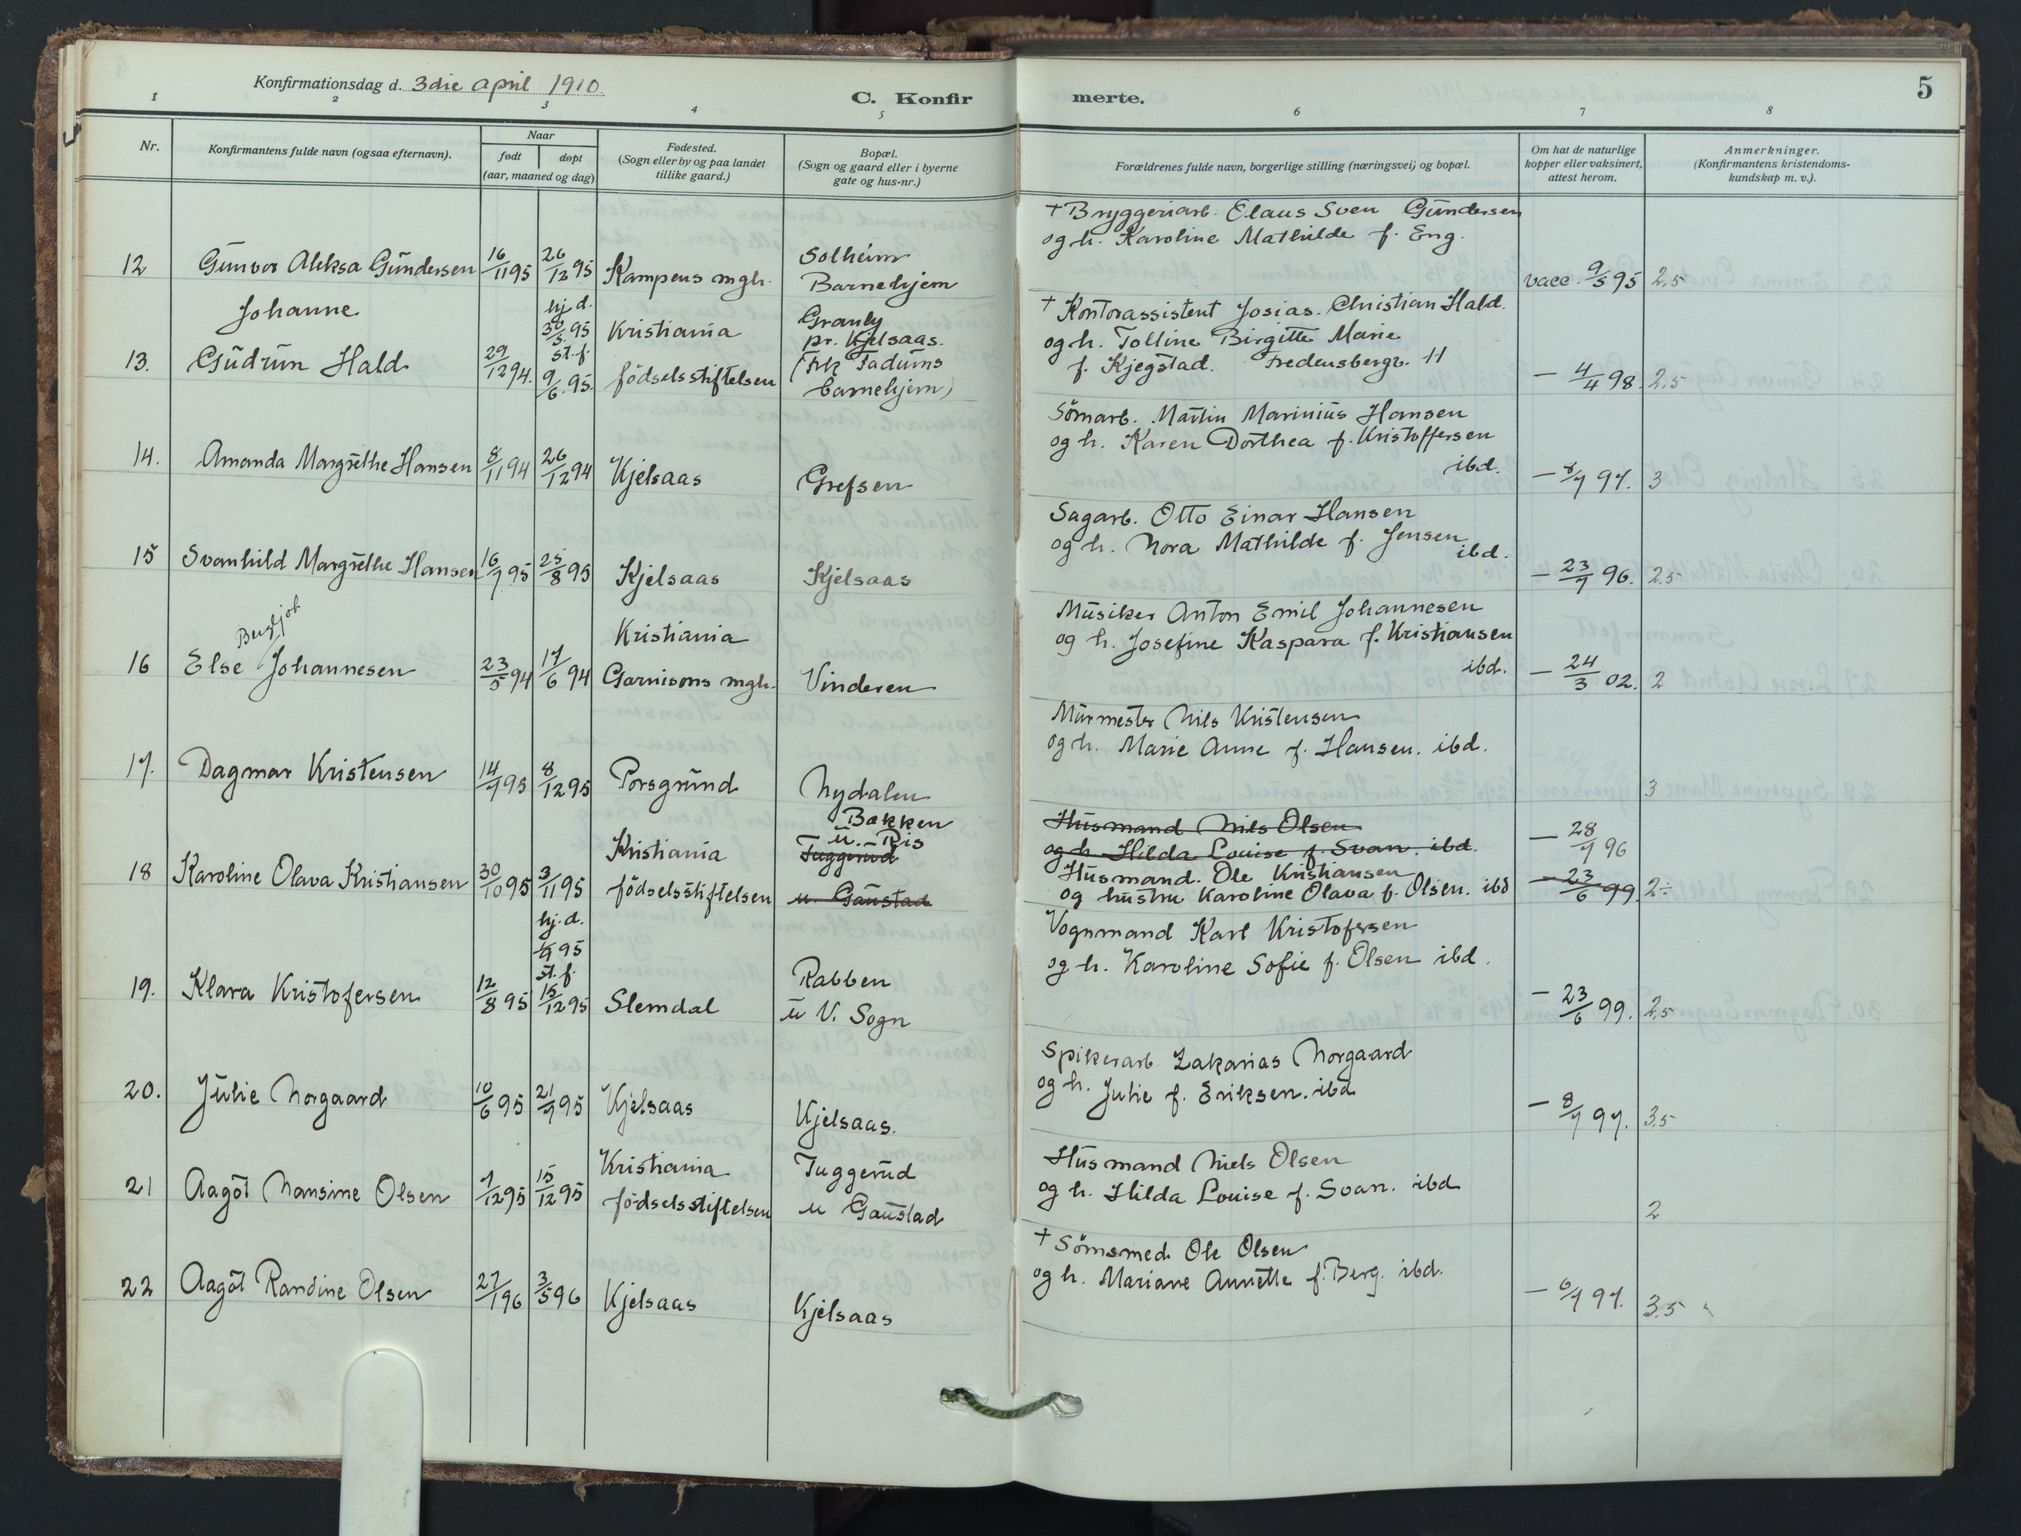 Konfirmationsdag d. 3die april 1910
C. Konfirmerte.
5
1 2 3 4 5 6 7 8
Nr.
Konfirmantens fulde navn (ogsaa efternavn).
Naar
født
døpt
(aar, maaned og dag)
Fødested.
(Sogn eller by og paa landet
tillike gaard.)
Bopæl.
(Sogn og gaard eller i byerne
gate og hus-nr.)
Forældrenes fulde navn, borgerlige stilling (næringsvei) og bopæl.
Om hat de naturlige
kopper eller vaksinert,
attest herom.
Anmerkninger.
(Konfirmantens kristendoms-
kundskap m. v.).
12 Gunvor Aleksa Gundersen 16/11 95 26/12 95 Kampens mgh.
Solheim
Barnehjem
+ Bryggeriarb. Claus Sven Gundersen
og h. Karoline Mathilde f. Eng.
vacc. 9/5 95 2.5
13. Johanne
Gudrun Hald 29/12 94.
hj. d.
30/5 95
st. f.
9/6 95.
Kristiania
fødselsstiftelsen
Granly
pr. Kjelsaas.
(Frk Tadums
barnehjem)
+ Kontorassistent Josias Christian Hald.
og h. Tolline Birgitte Marie
f. Kjegstad. Fredensbergv. 11
— 4/4 98. 2.5
14. Amanda Margrethe Hansen 8/11 94 26/12 94 Kjelsaas Grefsen
Sömarb. Martin Marinius Hansen
og h. Karen Dorthea f. Kristoffersen
ibd.
— 8/7 97. 3
15 Svanhild Margrethe Hansen 16/7 95 25/8 95 Kjelsaas Kjelsaas
Sagarb. Otto Einar Hansen
og h. Nora Mathilde f. Jensen
ibd.
— 23/7 96. 2.5
16 Else Johannesen 23/5 94 17/6 94
Kristiania
Garnisons mgh. Vinderen
Musiker Anton Emil Johannesen
og h. Josefine Kaspara f. Kristiansen
ibd.
— 24/3 02. 2
17. Dagmar Kristensen 14/7 95 8/12 95 Porsgrund Nydalen
Murmester Nils Kristensen
og h. Marie Anne f. Hansen. ibd.
3
18 Karoline Olava Kristiansen 30/10 95 3/11 95
Kristiania
fødselsstiftelsen
Bakken
u. Ris
Tuggerud
u. Gaustad
Husmand Nils Olsen
og h. Hilda Louise f. Svan. ibd.
Husmand. Ole Kristiansen
og hustru Karoline Olava f. Olsen. ibd
— 28/7 96
— 23/6 99. 2÷
19. Klara Kristofersen 12/8 95
hj. d.
1/9 95
st. f.
15/12 95
Slemdal
Rabben
u V. Sogn
Vognmand Karl Kristofersen
og h. Karoline Sofie f. Olsen ibd.
— 23/6 99. 2.5
20. Julie Norgaard 10/6 95 21/7 95 Kjelsaas Kjelsaas.
Spikerarb Zakarias Norgaard
og h. Julie f. Eriksen. ibd
— 8/7 97. 3.5
21 Aagot Nansine Olsen 7/12 95 15/12 95
Kristiania
fødselsstiftelsen
Tuggerud
u Gaustad
Husmand Niels Olsen
og h. Hilda Louise f. Svan. ibd
2
22 Aagot Randine Olsen 27/1 96 3/5 96 Kjelsaas Kjelsaas
+ Sömsmed Ole Olsen
og h. Mariane Annette f. Berg. ibd.
— 6/7 97. 3.5